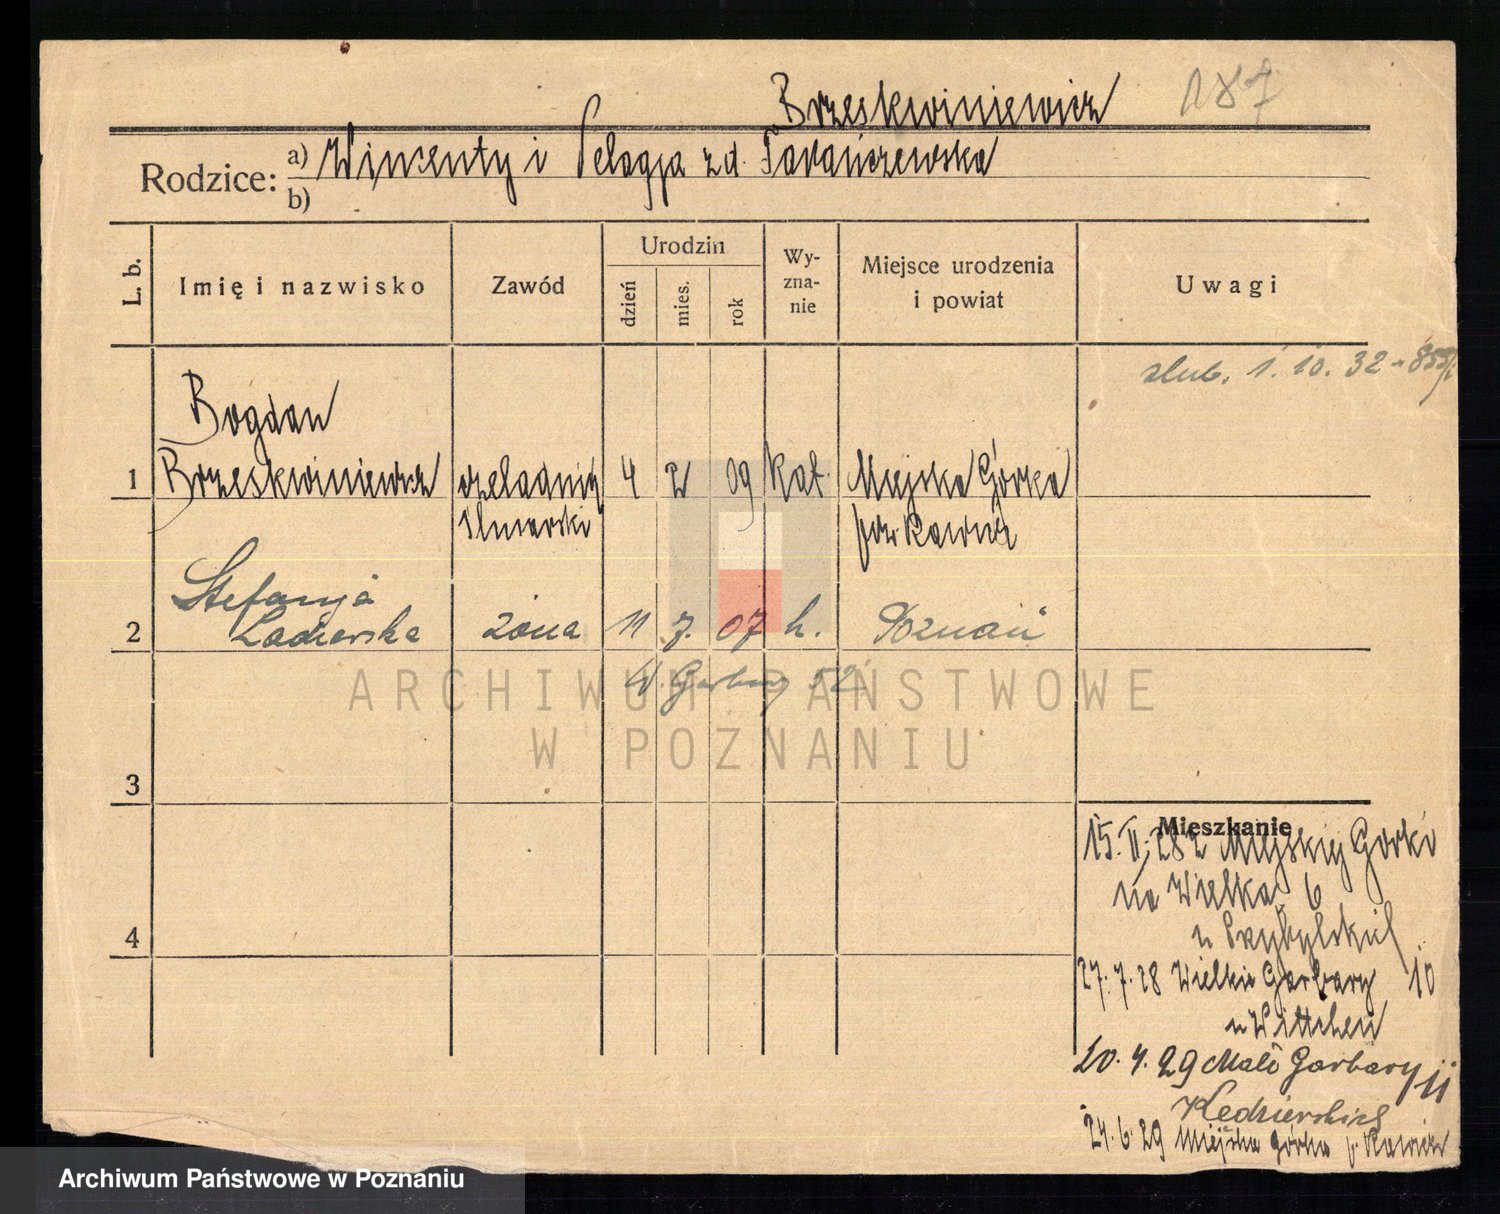 Brzeskwiniewicz 187
Rodzice: a) Wincenty i Pelagja z d. Tarańczewska
b)
L. b.
Imię i nazwisko
Zawód
Urodzin
dzień
mies.
rok
Wy-
zna-
nie
Miejsce urodzenia
i powiat
Uwagi
ślub. 1. 10. 32
Bogdan
1 Brzeskwiniewicz czeladnik 4 2 09 kat. Miejska Górka
ślusarski pow. Rawicz
Stefanja
2 żona 11 7. 07 k. Poznań
W. Garbary 52
3
4
Mieszkanie
15. II. 28 z Miejskiej Górki
na Wielka 6
u Przybylskich
27. 7. 28 Wielkie Garbary 10
u Wittchen
20. 4. 29 Małe Garbary 11
Kędzierskich
24. 6. 29 Miejska Górka p. Rawicz
ARCHIWUM PAŃSTWOWE
W POZNANIU
Archiwum Państwowe w Poznaniu